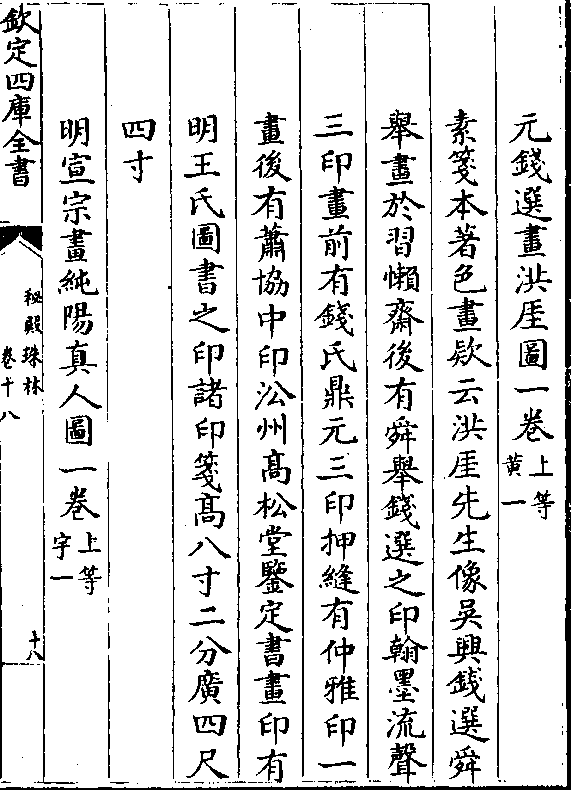 元錢選畫洪厓圖一卷上等黃一
素箋本著色畫款云洪厓先生像吳興錢選舜
舉畫於習懶齋後有舜舉錢選之印翰墨流聲
三印畫前有錢氏鼎元三印押縫有仲雅印一
畫後有蕭協中印㳂州髙松堂鑒定書畫印有
明王氏圖書之印諸印箋髙八寸二分廣四尺
四寸
明宣宗畫純陽真人圖一卷上等字一
欽定四庫全書
秘殿珠林
卷十八
十八